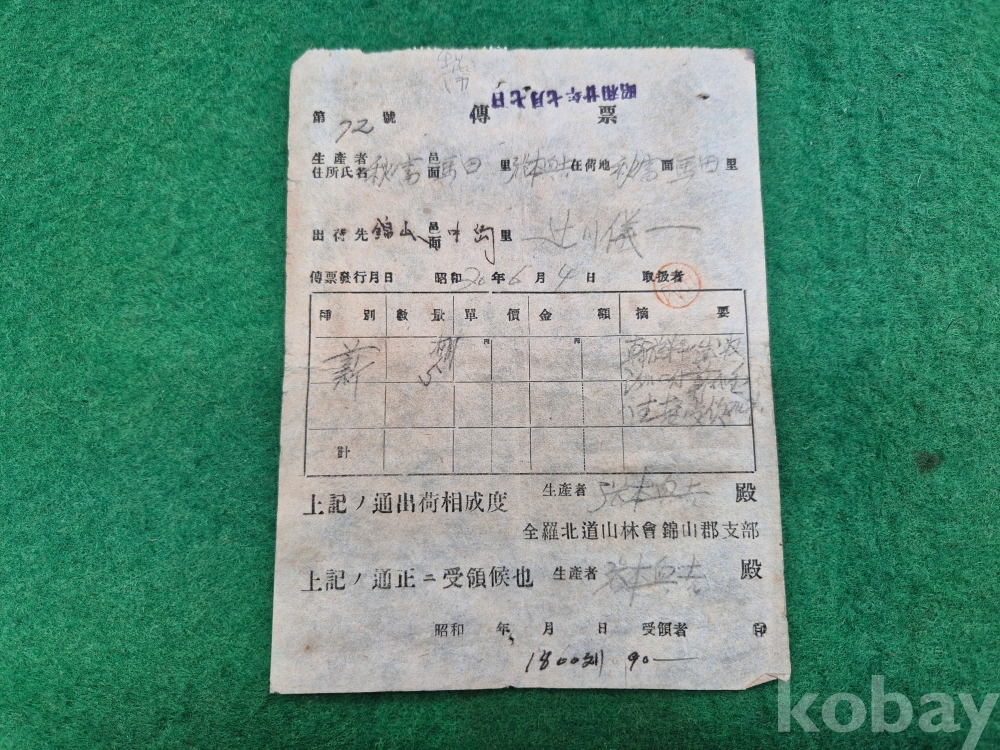 昭和廿年七月七日
第 72 號 傳票
生產者住所氏名 秋富 邑面 馬田 里 張本 在荷地 秋富 面 馬田 里
出荷先 錦山 邑面 中 里 辻川儀一
傳票發行月日 昭和 20 年 6 月 4 日 取扱者
種別 數量 單價 金額 摘要
薪 5 円 円
計
上記ノ通出荷相成度 生產者 張本 殿
全羅北道山林會錦山郡支部
上記ノ通正ニ受領候也 生產者 張本 殿
昭和 年 月 日 受領者 印
1800 90
kobay